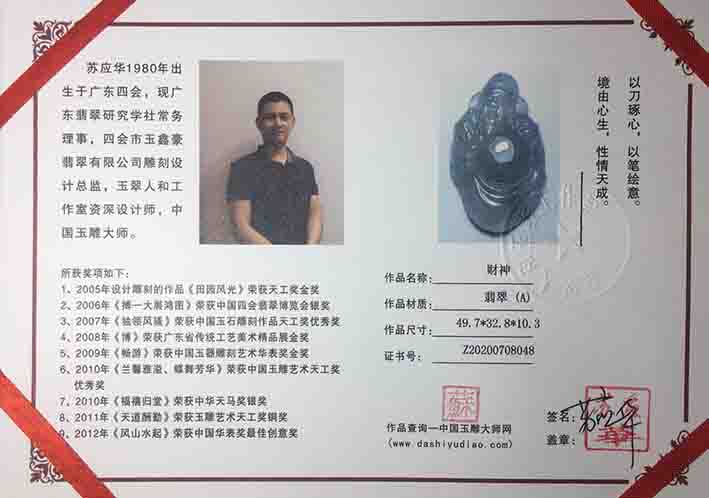 苏应华1980年出
生于广东四会，现广
东翡翠研究学社常务
理事，四会市玉鑫豪
翡翠有限公司雕刻设
计总监，玉翠人和工
作室资深设计师，中
国玉雕大师。
以刀琢心，以笔绘意。
境由心生，性情天成。
所获奖项如下：
1、2005年设计雕刻的作品《田园风光》荣获天工奖金奖
2、2006年《搏一大展鸿图》荣获中国四会翡翠博览会银奖
3、2007年《独领风骚》荣获中国玉石雕刻作品天工奖优秀奖
4、2008年《博》荣获广东省传统工艺美术精品展金奖
5、2009年《畅游》荣获中国玉器雕刻艺术华表奖金奖
6、2010年《兰馨雅溢、蝶舞芳华》荣获中国玉雕艺术天工奖
优秀奖
7、2010年《福禧归堂》荣获中华天马奖银奖
8、2011年《天道酬勤》荣获玉雕艺术天工奖铜奖
9、2012年《风山水起》荣获中国华表奖最佳创意奖
作品名称：财神
作品材质：翡翠（A）
作品尺寸：49.7*32.8*10.3
证书号：Z20200708048
作品查询—中国玉雕大师网
(www.dashiyudiao.com)
签名：苏应华
盖章：